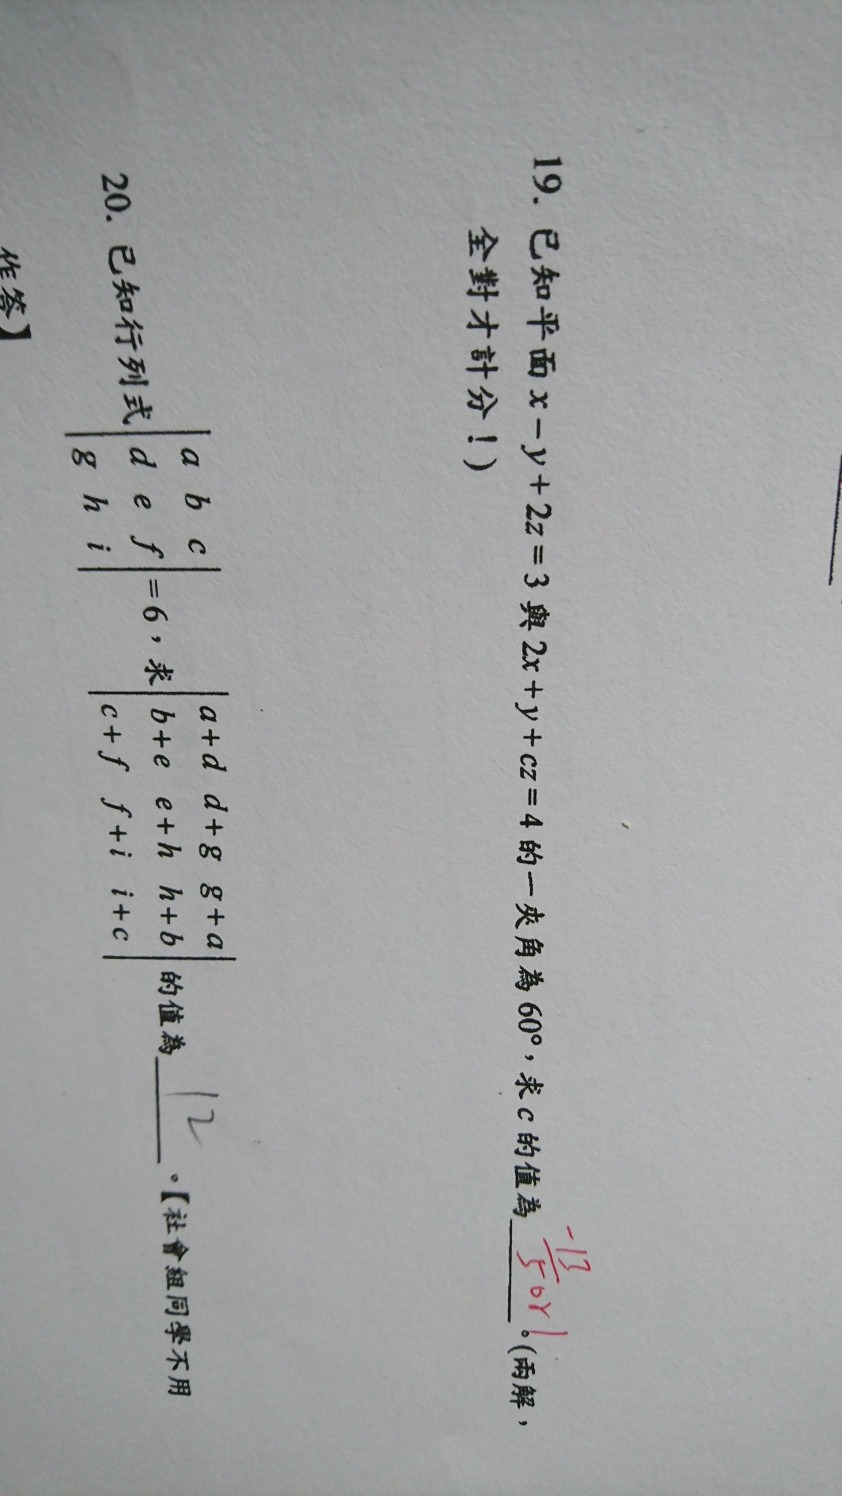 19. 已知平面 x－y＋2z＝3 與 2x＋y＋cz＝4 的一夾角為 60°，求 c 的值為 -13/5 or 1 。(兩解，
全對才計分！)
20. 已知行列式 | a b c |
| d e f | ＝6，求
| g h i |
| a＋d d＋g g＋a |
| b＋e e＋h h＋b | 的值為 12 。【社會組同學不用
| c＋f f＋i i＋c |
作答】